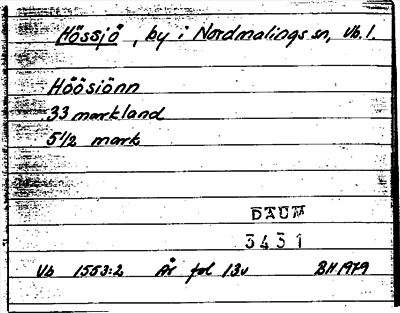 Hössjö, by i Nordmalings sn, Vb. l.
Höösiönn
33 markland
5 1/2 mark
DAUM
3431
Vb 1553:2 År fol 13v BH 1979